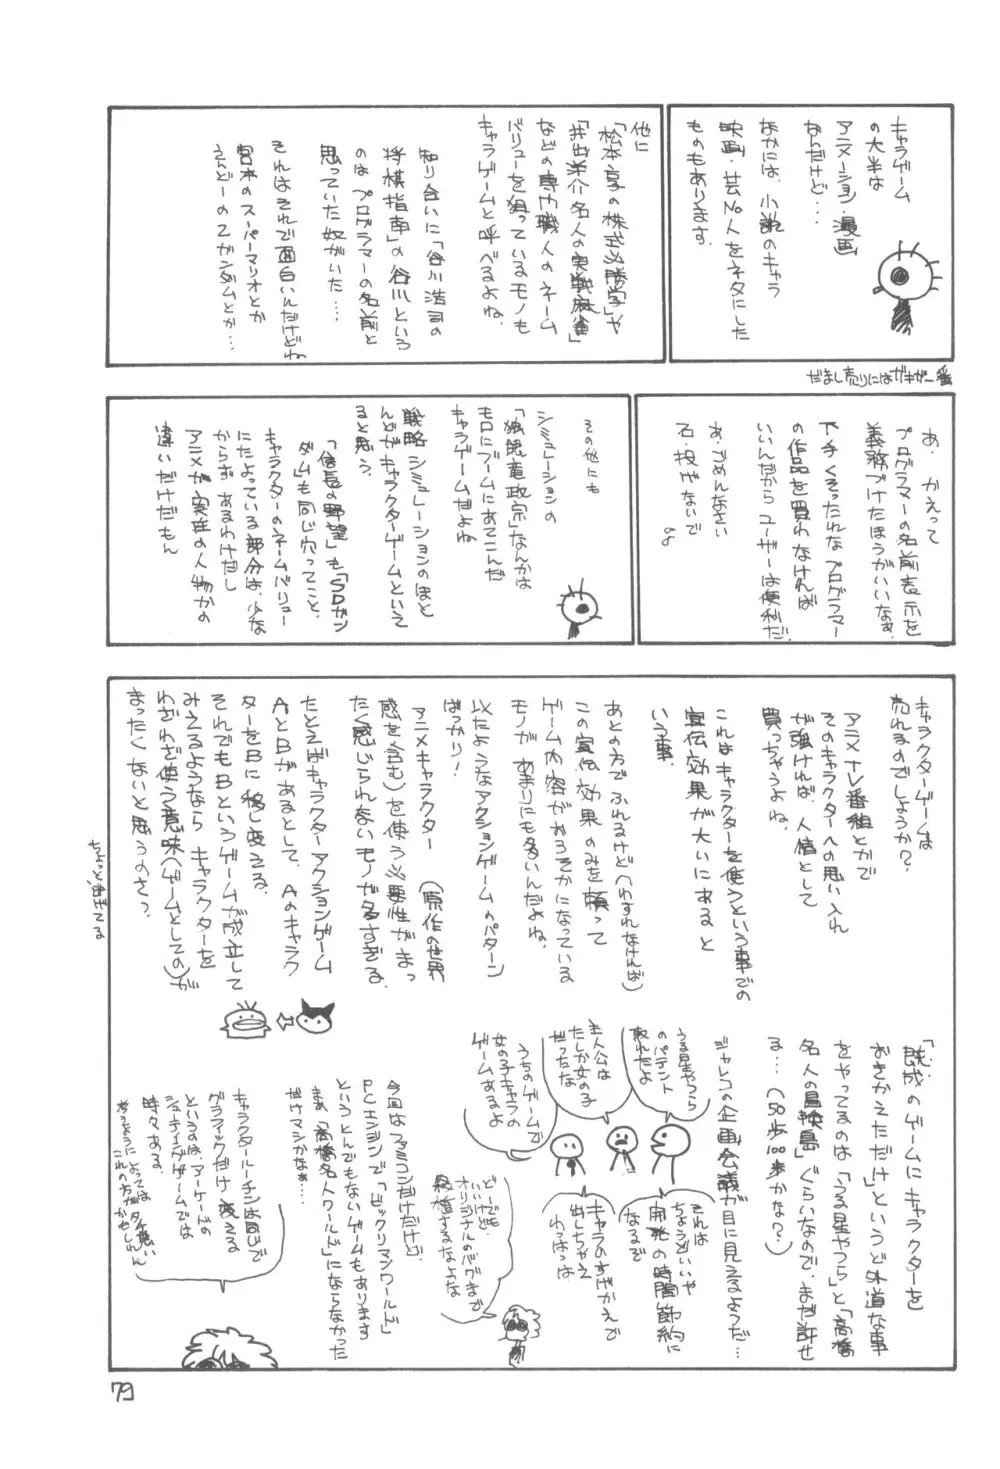 キャラゲーム
の大半は
アニメーション・漫画
なんだけど…
なかには、小説のキャラ
映画・芸No人をネタにした
ものもあります。
他に
「松本亨の株式必勝学」や
「井出洋介名人の実戦麻雀」
などの専門職人のネーム
バリューを狙っているモノも
キャラゲームと呼べるよね。
知り合いに「谷川浩司の
将棋指南」の谷川という
のはプログラマーの名前と
思っていた奴がいた…
それはそれで面白いんだけどね
宮本のスーパーマリオとか
えんどーのZガンダムとか…
だまし売りにはガキが一番
あ、かえって
プログラマーの名前表示を
義務づけたほうがいいなぁ
下手くそったれなプログラマー
の作品を買わなければ
いいんだからユーザーは便利だ。
あ、ごめんなさい
石、投げないで
その他にも
シミュレーションの
「独眼竜政宗」なんかは
モロにブームにあてこんだ
キャラゲームだよね
戦略シミュレーションのほと
んどがキャラクターゲームといえ
ると思う。
「信長の野望」も「SDガン
ダム」も同じ穴ってこと、
キャラクターのネームバリュー
にたよっている部分は、少な
からず あるわけだし
アニメが実在の人物かの
違いだけだもん
キャラクターゲームは
売れるのでしょうか?
アニメTV番組とかで
そのキャラクターへの思い入れ
が強ければ、人情として
買っちゃうよね。
これはキャラクターを使うという事での
宣伝効果が大いにあると
いう事、
あとの方でふれるけど(わすれなければ)
この宣伝効果のみを頼って
ゲーム内容がおろそかになっている
モノがあまりにも多いんだよね、
以たようなアクションゲームのパターン
ばっかり!
アニメキャラクター(原作の世界
感を含む)を使う必要性がまっ
たく感じられないモノが多すぎる
たとえばキャラクターアクションゲーム
AとBがあるとして、Aのキャラク
ターをBに移し変える。
それでもBというゲームが成立して
みえるようなら キャラクターを
わざわざ使う意味(ゲームとしての)が
まったくないと思うのさっ。
「既成のゲームにキャラクターを
おきかえただけ」というど外道な事
をやってるのは「うる星やつら」と「高橋
名人の冒険島」ぐらいなので、まだ許せ
る…(50歩100歩かな?)
ジャレコの企画会議が目に見えるようだ…
うる星やつら
のパテント
取れたよ
主人公は
たしか女の子
だったな
うちのゲームで
女の子キャラの
ゲームあるよ
それは
ちょうどいいや
開発の時間節約に
なるぞ
キャラのすげかえで
出しちゃえ
わっはっは
どーでも
いいけど、
オリジナルのバグまで
移植するなよな
今回はファミコンだけだけど、
PCエンジンで「ビックリマンワールド」
というとんでもないゲームもあります
まぁ「高橋名人ワールド」にならなかった
だけマシかなぁ…
キャラクタールーチンは同じで
グラフィックだけ変える
というのは、アーケードの
シューティングゲームでは
時々ある。
考えようによっては
これの方がタチ悪い
かもしれん
79